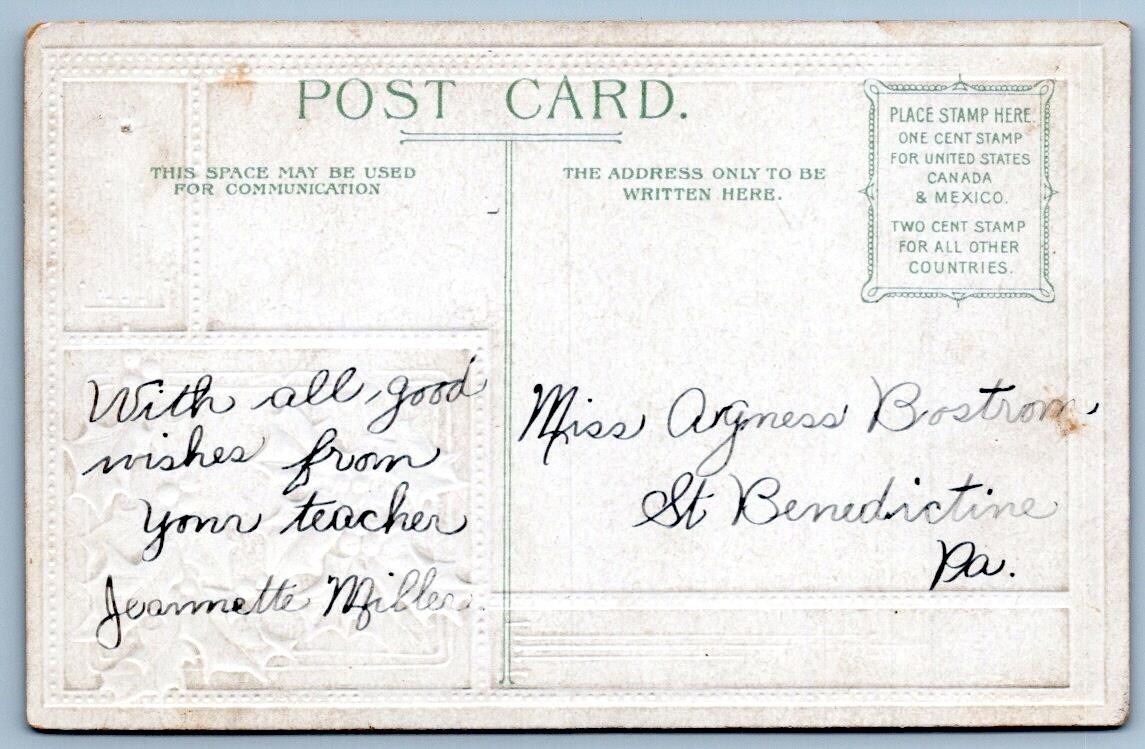 POST CARD.
THIS SPACE MAY BE USED
FOR COMMUNICATION
THE ADDRESS ONLY TO BE
WRITTEN HERE.
PLACE STAMP HERE.
ONE CENT STAMP
FOR UNITED STATES
CANADA
& MEXICO.
TWO CENT STAMP
FOR ALL OTHER
COUNTRIES.
With all good
wishes from
your teacher
Jeannette Miller.
Miss Argness Bostrom,
St Benedictine
Pa.